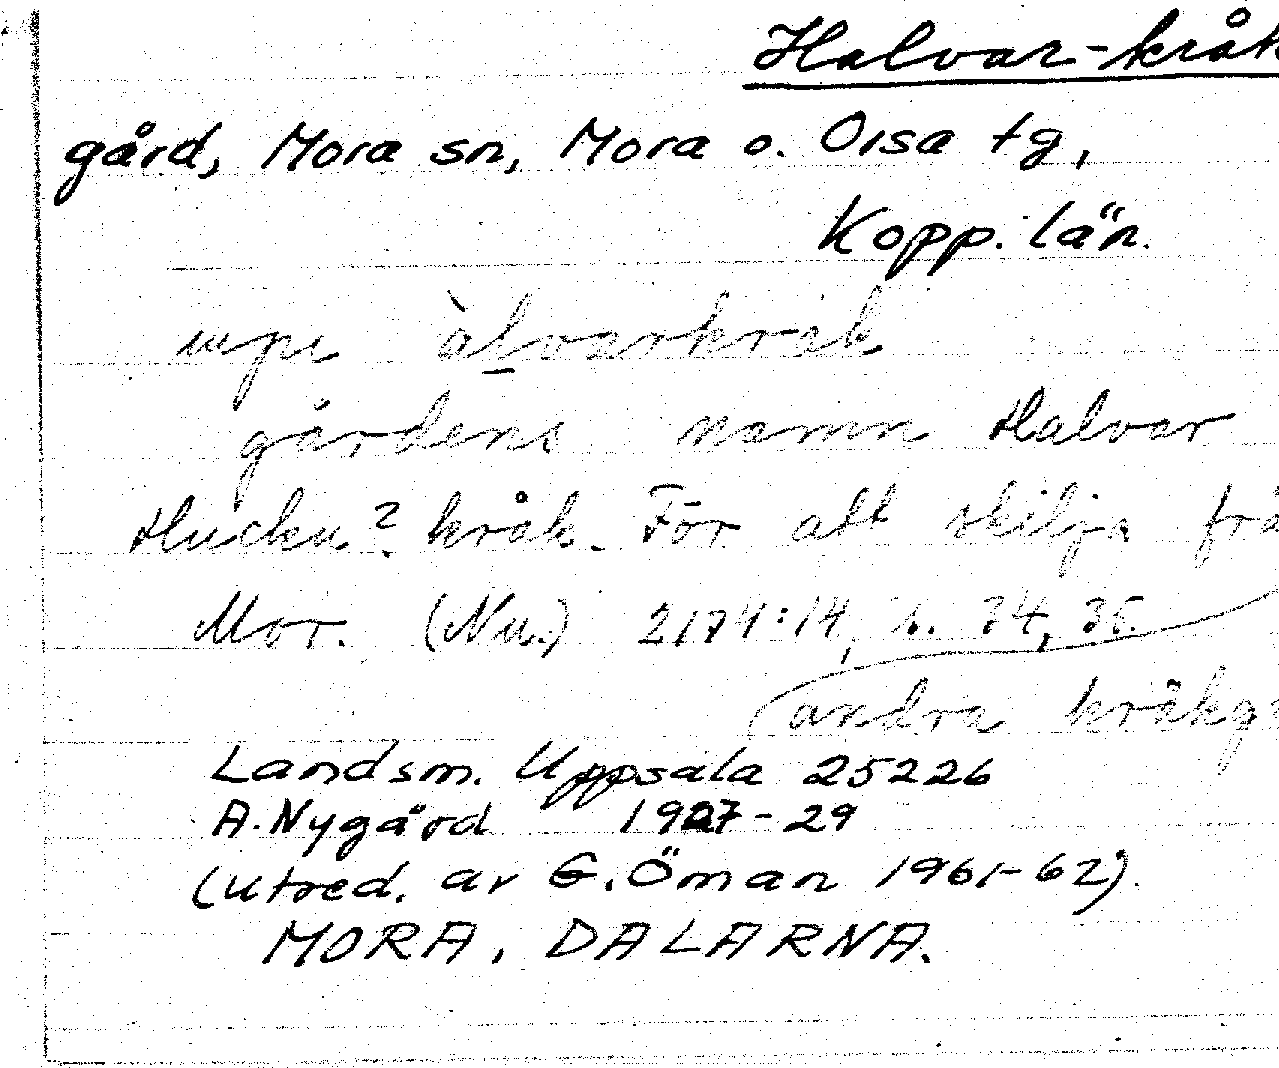 Halvar-kråk
gård, Mora sn, Mora o. Orsa tg,
Kopp. län.
àlvarkråk
gårdens namn Halvar
Hucku? kråk. För att skilja frå
Mor. (Nu.) 2174:14, s. 34, 35.
andra kråkg
Landsm. Uppsala 25226
A. Nygård 1927-29
(utred. av G. Öman 1961-62).
MORA, DALARNA.